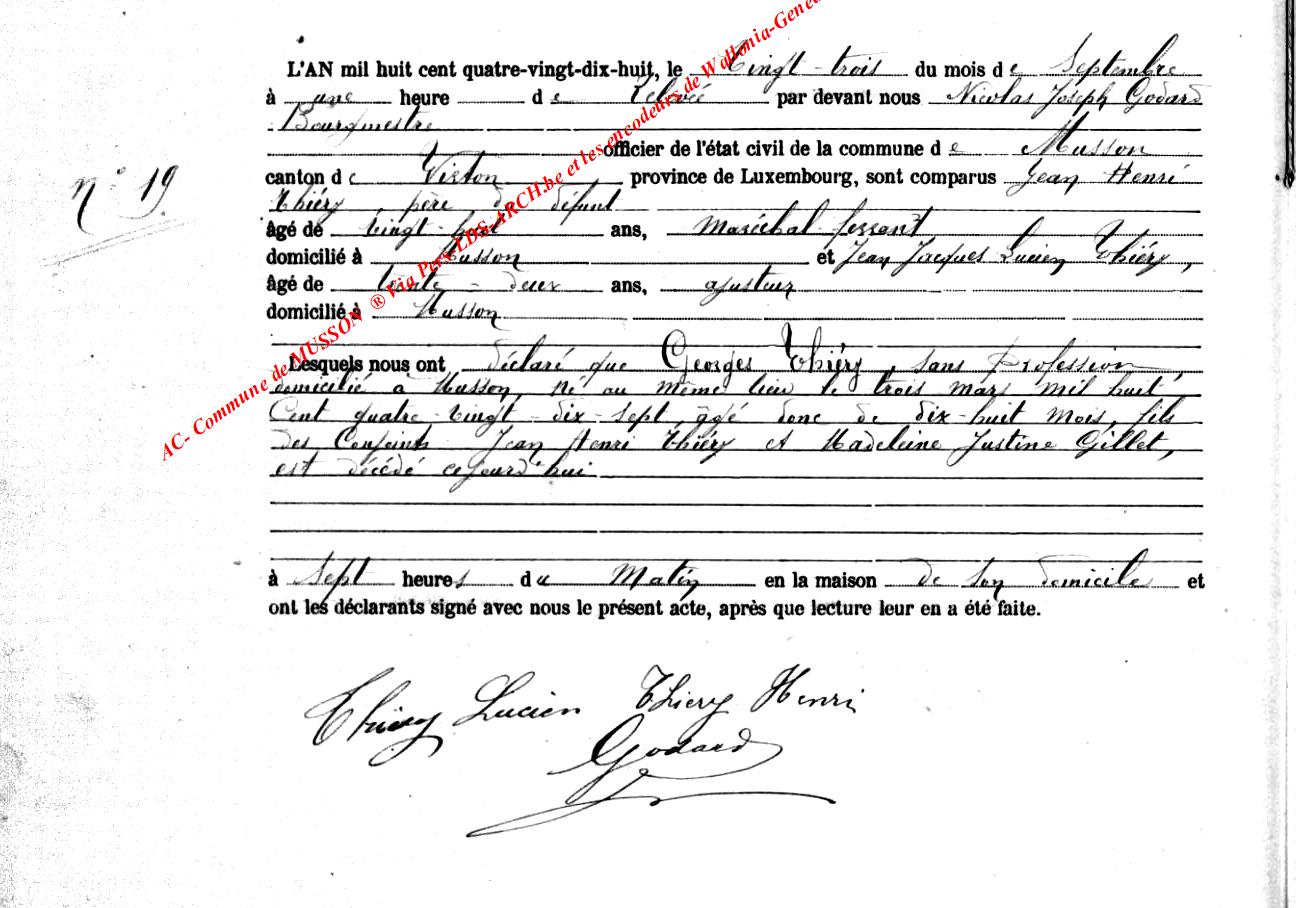 L'AN mil huit cent quatre-vingt-dix-huit, le Vingt-trois du mois de Septembre
à une heure de relevée par devant nous Nicolas Joseph Godard
Bourgmestre
officier de l'état civil de la commune de Musson
n° 19.
canton de Virton province de Luxembourg, sont comparus Jean Henri
Thiéry, père du défunt
âgé de vingt-huit ans, Maréchal ferrant
domicilié à Musson et Jean Jacques Lucien Thiéry,
âgé de trente-deux ans, ajusteur
domicilié à Musson
Lesquels nous ont déclaré que Georges Thiéry, sans profession,
domicilié à Musson, né au même lieu le trois mars mil huit
Cent quatre-vingt-dix-sept âgé donc de dix-huit mois, fils
des Conjoints Jean Henri Thiéry et Madeleine Justine Gillet,
est décédé cejourd'hui
à Sept heures du Matin en la maison de son domicile et
ont les déclarants signé avec nous le présent acte, après que lecture leur en a été faite.
Thiéry Lucien Thiery Henri
Godard
AC- Commune de MUSSON ® Via Perso LDS-ARCH.be et les encodeurs de Wallonia-Genea